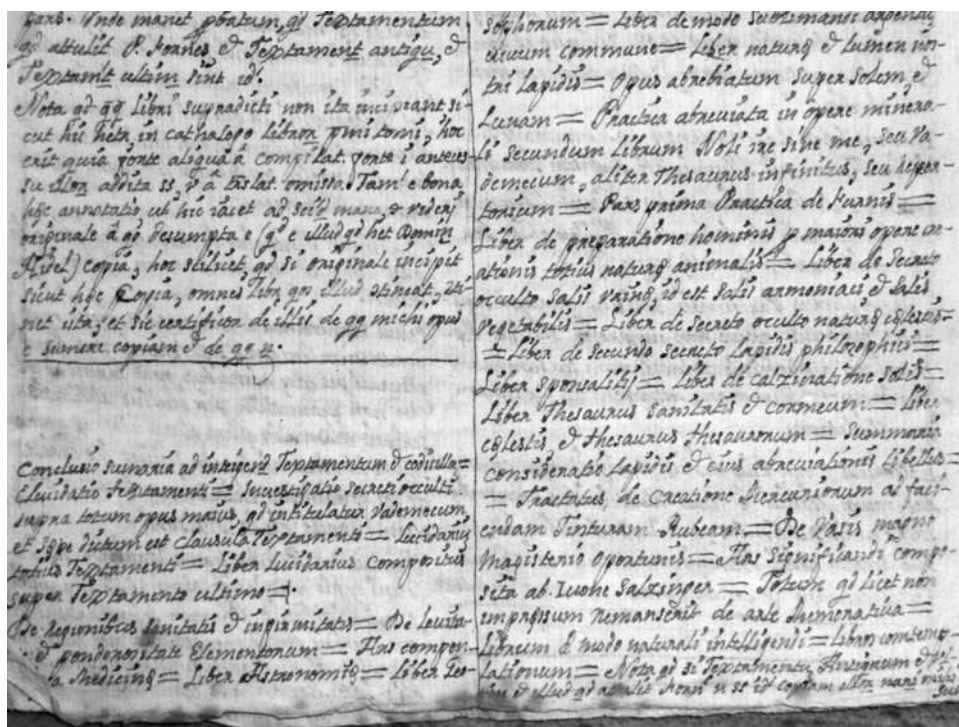 pars. Unde manet pbatum, qd Textamentum
qd attulit P. Fornes & Textament antiqu, &
Textamt ultim sint id.
Nota qd qq libri supradicti non ita incipiant si-
cut hic hetr in cathalogo libror pmi tomi, hoc
erit quia forte aliqua a compilat. forte i anteces-
su illor addita ss, v a traslat. omissa. Tam e bona
hec annotatio ut hic iacet ad
originale a qd desumpta e (q e illud qd het Domin
Fidel) copia, hoc scilicet, qd si originale incipit
sicut hec Copia, omnes libri qos illud
net ita, et sic certificor de illis de qq michi opus
e sumere copiam & de qq n.
Conclusio sumaria ad inteligend Textamentum & codicilla=
Elucidatio textamenti= Investigatio secreti occulti
supra totum opus maius, qd intitulatur vademecum,
et sepe dictum est clausula Textamenti= Lucidarius
totius Textamenti= Liber lucidarius compositus
super Textamento ultimo=|.
De Regionibus sanitatis & infirmitatis= De levita-
& ponderositate Elementorum= Ars compen-
a Medicine= Liber Astronomie= Liber Leo-
sophorum= Liber de modo sublimandi argentu
vivum commune= Liber nature & lumen nos-
tri lapidis= Opus abrebiatum super solem &
Lunam= Practica abreviata in opere minera-
li secundum librum Noli ire sine me, seu va-
demecum, aliter Thesaurus infinitus, seu Reper-
torium= Pars prima Practica de Furnis=
Liber de preparatione hominis p maiori opere cre-
ationis totius nature animalis= Liber de secreto
occulto salis urine, id est salis armoniaci & salis
vegetabilis= Liber de secreto occulto nature celestis=
=Liber de secundo secreto lapidis philozophici=
Liber sponsalitij= Liber de calzinatione solis=
Liber Thesaurus sanitatis & cormeum= liber
celestis & thesaurus thesaurorum= Summaria
consideratio lapidis & eius abreviationis libellus=
= Tractatus de creatione Mercuriorum ad faci-
endam Tinturam Rubeam= De vasis magno
Magisterio oportunis= Ars significandi compo-
sita ab Ivone Salzinger= Totum qd licet non
impressum remanserit de arte Memorativa=
Librum d modo naturali intelligendi= libror contemp-
lationum= Nota qd si Textamentu, Antiquum &
& illud qd attulit Forn n st id copiam illor